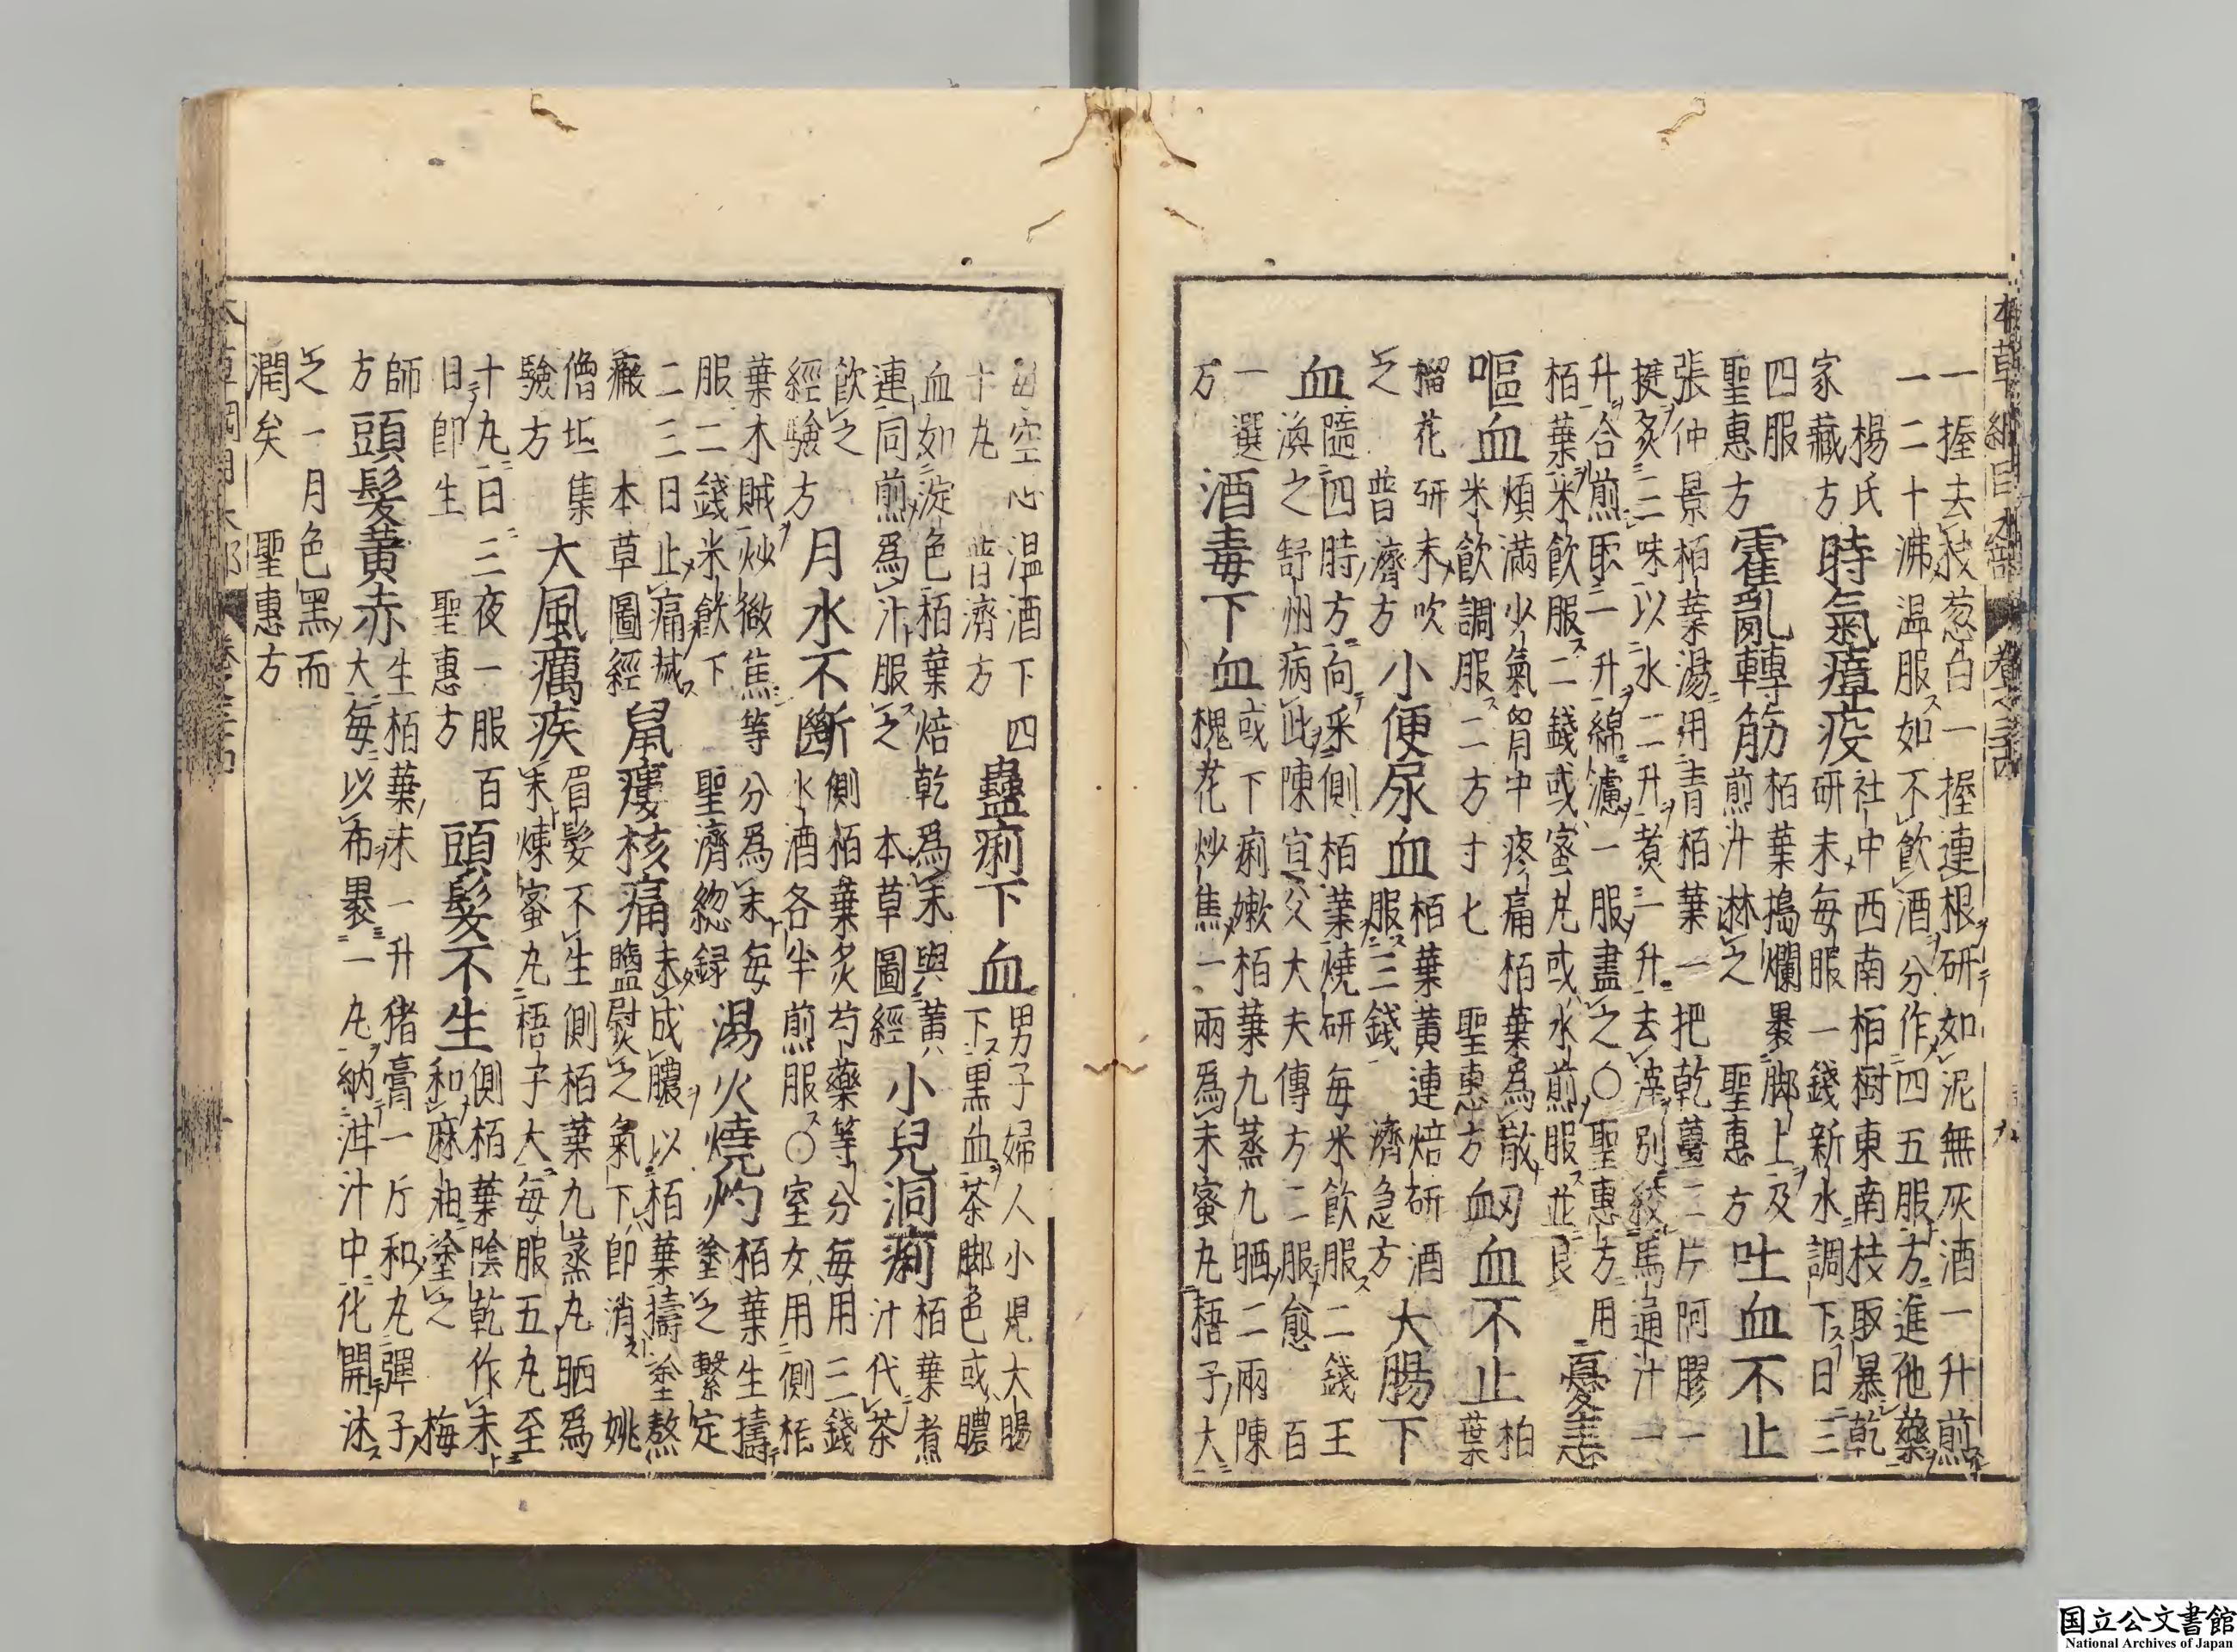 本草綱目木部 卷之三十四 九
一握去殼葱白一握連根研如泥無灰酒一升煎
一二十沸温服如不飲酒分作四五服方進他藥
楊氏
家藏方
時氣瘴疫
社中西南栢樹東南枝取暴乾
研末毎服一錢新水調下日三
四服
聖惠方
霍亂轉筋
栢葉搗爛裹脚上及
煎汁淋之 聖惠方
吐血不止
張仲景栢葉湯用青栢葉一把乾薑二片阿膠一
挺炙三味以水二升煮一升去滓別絞馬通汁一
升合煎取一升綿濾一服盡之〇聖惠方用
栢葉米飲服二錢或蜜丸或水煎服並良
憂恚
嘔血
煩滿少氣胷中疼痛栢葉為散
米飲調服二方寸匕 聖惠方
衂血不止
柏
葉
榴花研末吹
之 普濟方
小便尿血
栢葉黄連焙研酒
服三錢 濟急方
大腸下
血
隨四時方向采側栢葉燒研毎米飲服二錢王
渙之舒州病此陳宜父大夫傳方二服愈 百
一選
方
酒毒下血
或下痢嫩栢葉九蒸九晒二兩陳
槐花炒焦一兩為末蜜丸梧子大
毎空心温酒下四
十丸 普濟方
蠱痢下血
男子婦人小兒大腸
下黒血茶脚色或膿
血如淀色栢葉焙乾為末與黄
連同煎為汁服之 本草圖經
小兒洞痢
栢葉煮
汁代茶
飲之
經驗方
月水不斷
側栢葉炙芍藥等分毎用三錢
水酒各半煎服〇室女用側栢
葉木賊炒微焦等分為末毎
服二錢米飲下 聖濟緫録
湯火燒灼
栢葉生擣
塗之繫定
二三日止痛滅
瘢 本草圖經
鼠瘻核痛
未成膿以栢葉擣塗熬
鹽熨之氣下即消 姚
僧坦集
驗方
大風癘疾
眉髮不生側栢葉九蒸九晒為
末煉蜜丸梧子大毎服五丸至
十丸日三夜一服百
日即生 聖惠方
頭髮不生
側栢葉陰乾作末
和麻油塗之 梅
師
方
頭髮黄赤
生栢葉末一升猪膏一斤和丸彈子
大毎以布裹一丸納泔汁中化開沐
之一月色黒而
潤矣 聖惠方
国立公文書館
National Archives of Japan